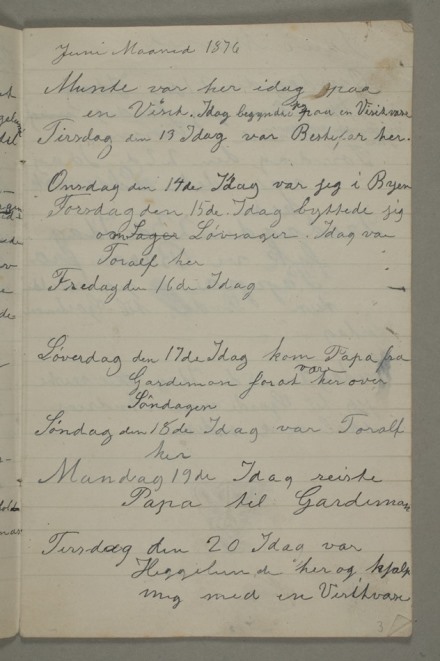 Juni Maaned 1876
Munste var her idag paa
en Visit. Idag begyndte jeg paa en Visitvase
Tirsdag den 13 Idag var Bestefar her.
Onsdag den 14de Idag var jeg i Byen
Torsdag den 15de. Idag byttede jeg
om Sager Løvsager. Idag var
Toralf her
Fredag den 16de Idag
Løverdag den 17de Idag kom Papa fra
Gardemoen forat være her over
Søndagen
Søndag den 18de Idag var Toralf
her
Mandag 19de Idag reiste
Papa til Gardemoen
Tirsdag den 20 Idag var
her og hjalp
mig med en Visitvase
3